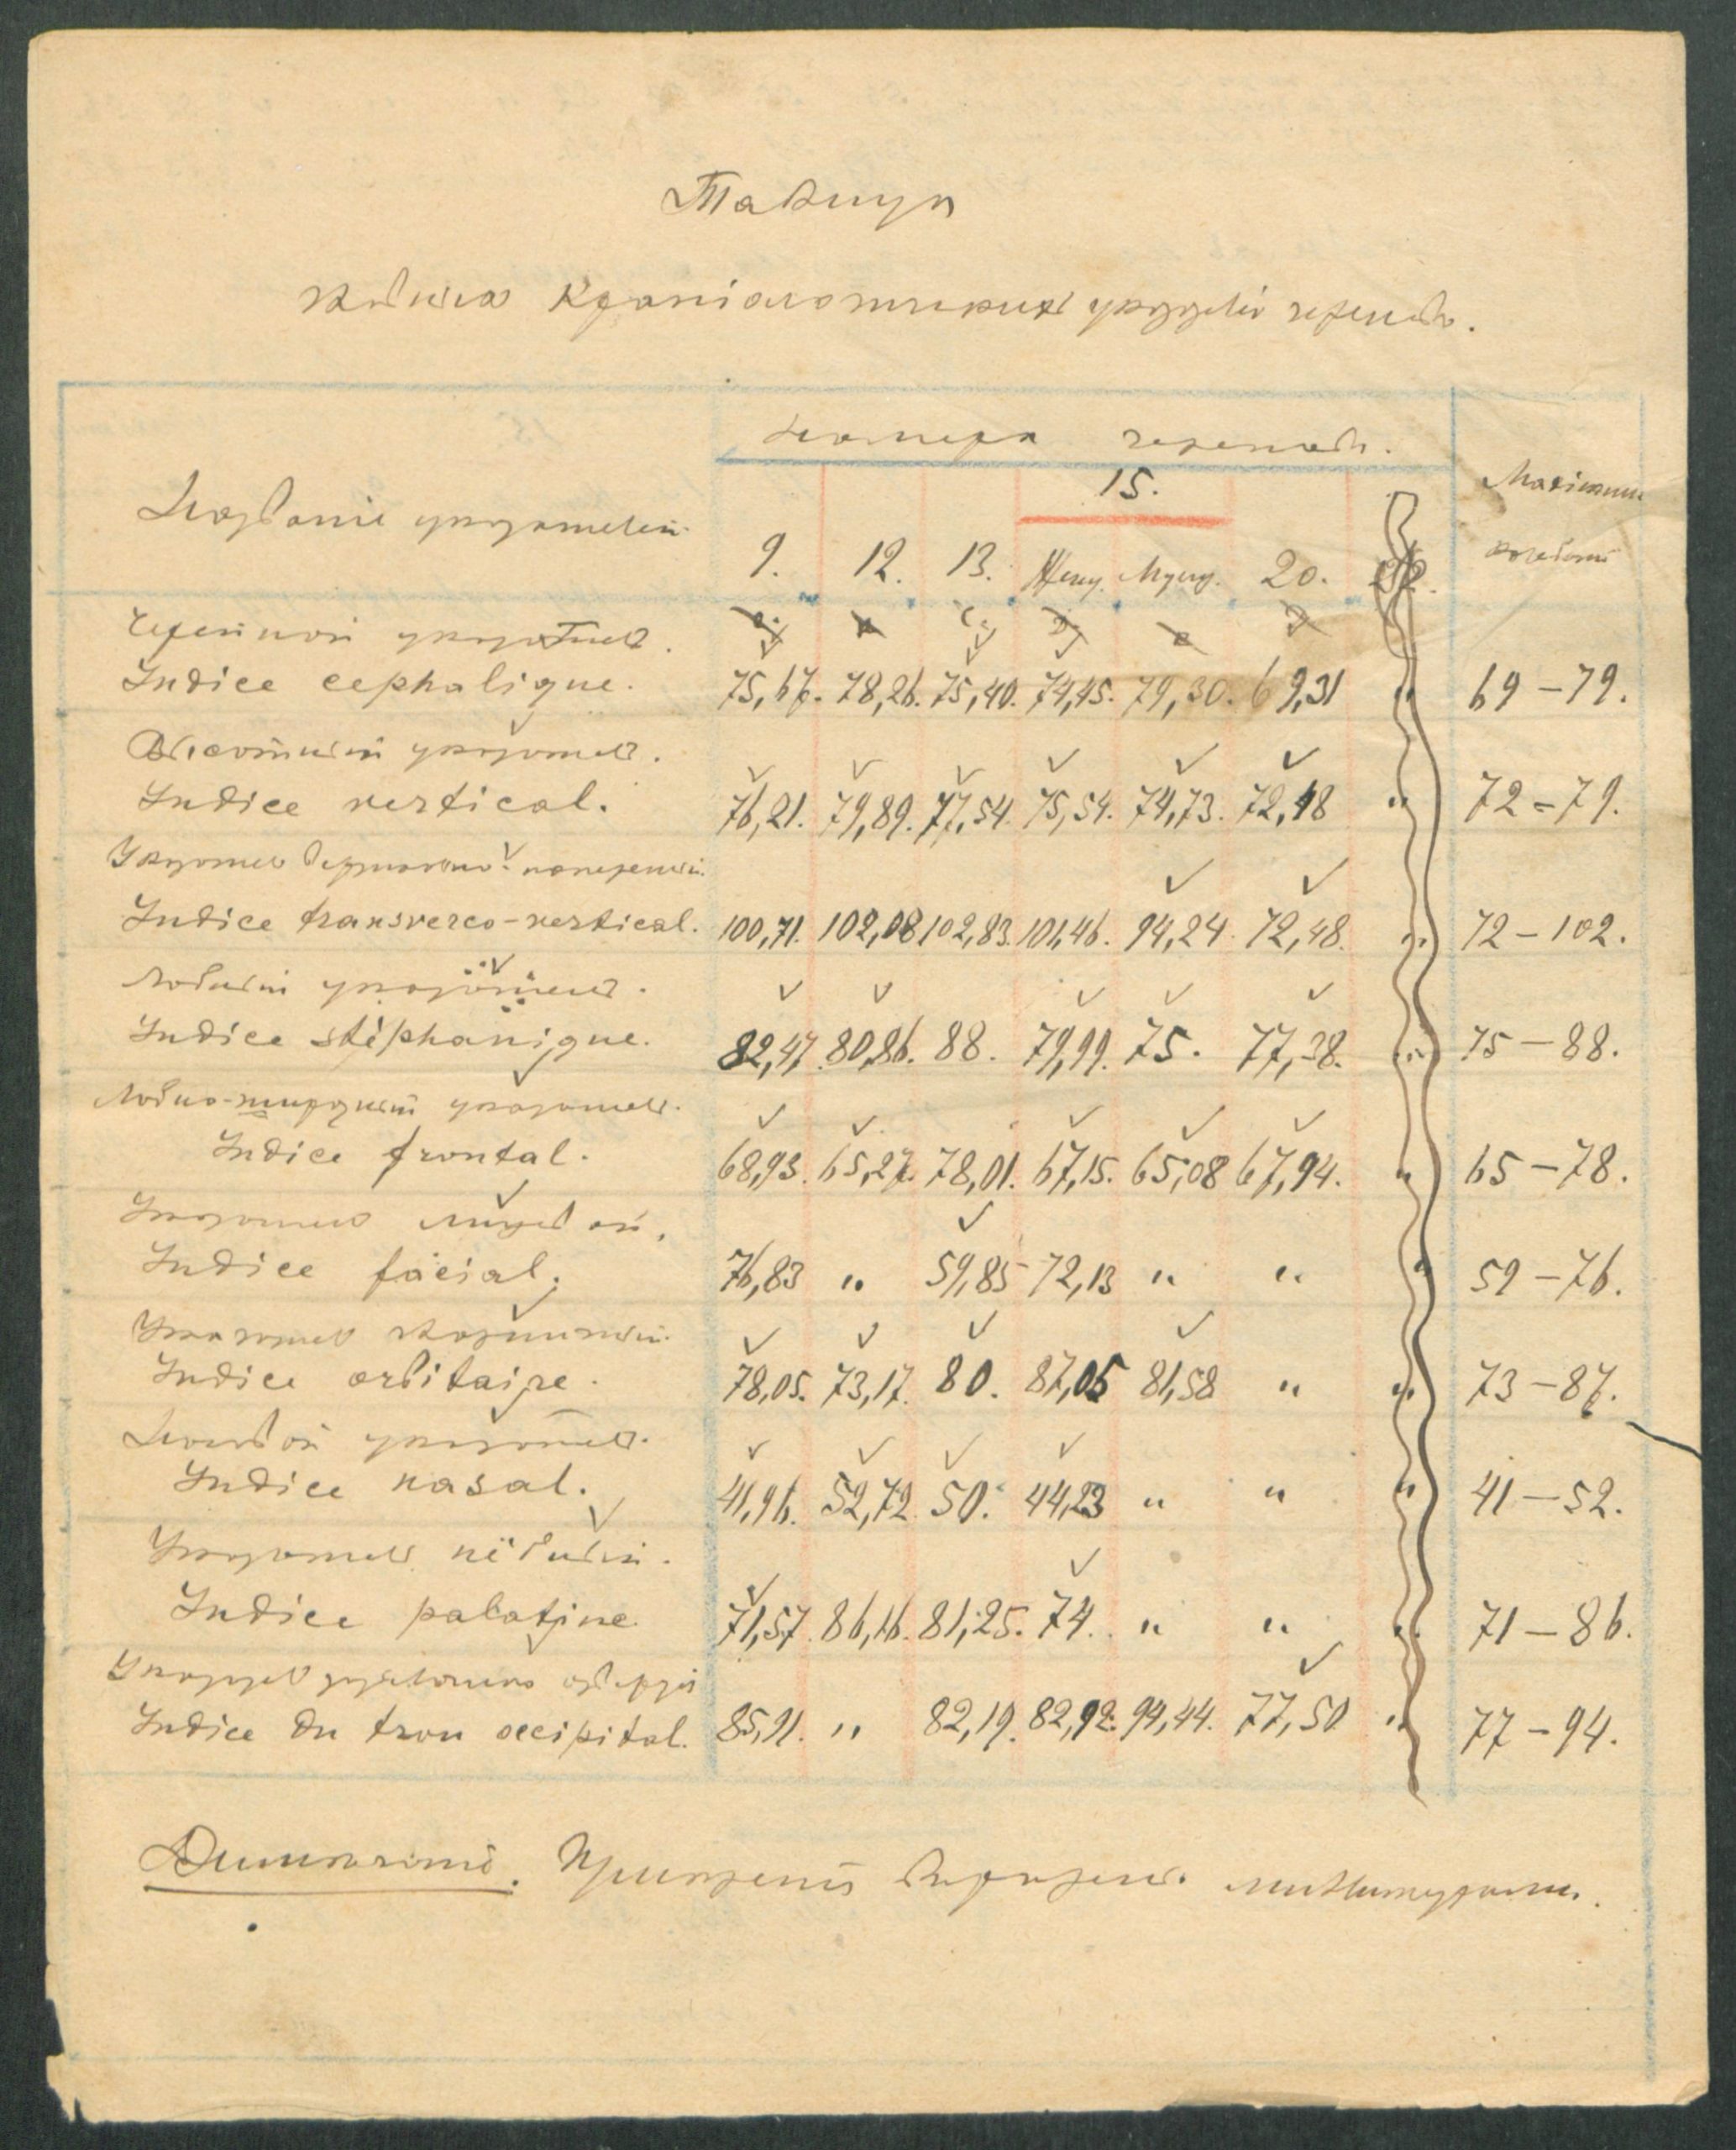 Таблица
указателей черепов.
номера черепов.
Названіе указателей
15.
Maximum
колебаній
9. 12. 13. Женщ. Мужч. 20.
Черепной указатель.
Indice cephalique. 75,67. 78,26. 75,40. 74,45. 79,30. 69,31 „ 69 – 79.
Высотный указатель.
Indice vertical. 76,21. 79,89. 77,54. 75,54. 74,73. 72,48 „ 72 – 79.
Указатель поперечный.
Indice transverco-vertical. 100,71. 102,08 102,83. 101,46. 94,24. 72,48. „ 72 – 102.
Лобный указатель.
Indice stéphanique. 82,47. 80,86. 88. 79,99. 75. 77,38. „ 75 – 88.
Лобно- указатель.
Indice frontal. 68,93. 65,27. 78,01. 67,15. 65,08 67,94. „ 65 – 78.
Указатель лицевой.
Indice facial. 76,83 „ 59,85 72,13 „ „ 59 – 76.
Указатель
Indice orbitaire. 78,05. 73,17. 80. 87,05 81,58 „ „ 73 – 87.
Носовой указатель.
Indice nasal. 41,96. 52,72. 50. 44,23 „ „ „ 41 – 52.
Указатель нёбный.
Indice palatine. 71,57. 86,16. 81,25. 74. „ „ „ 71 – 86.
Указатель затылочнаго отверстія
Indice du trou occipital. 85,91. „ 82,19. 82,92. 94,44. 77,50 „ 77 – 94.
Примѣчаніе.